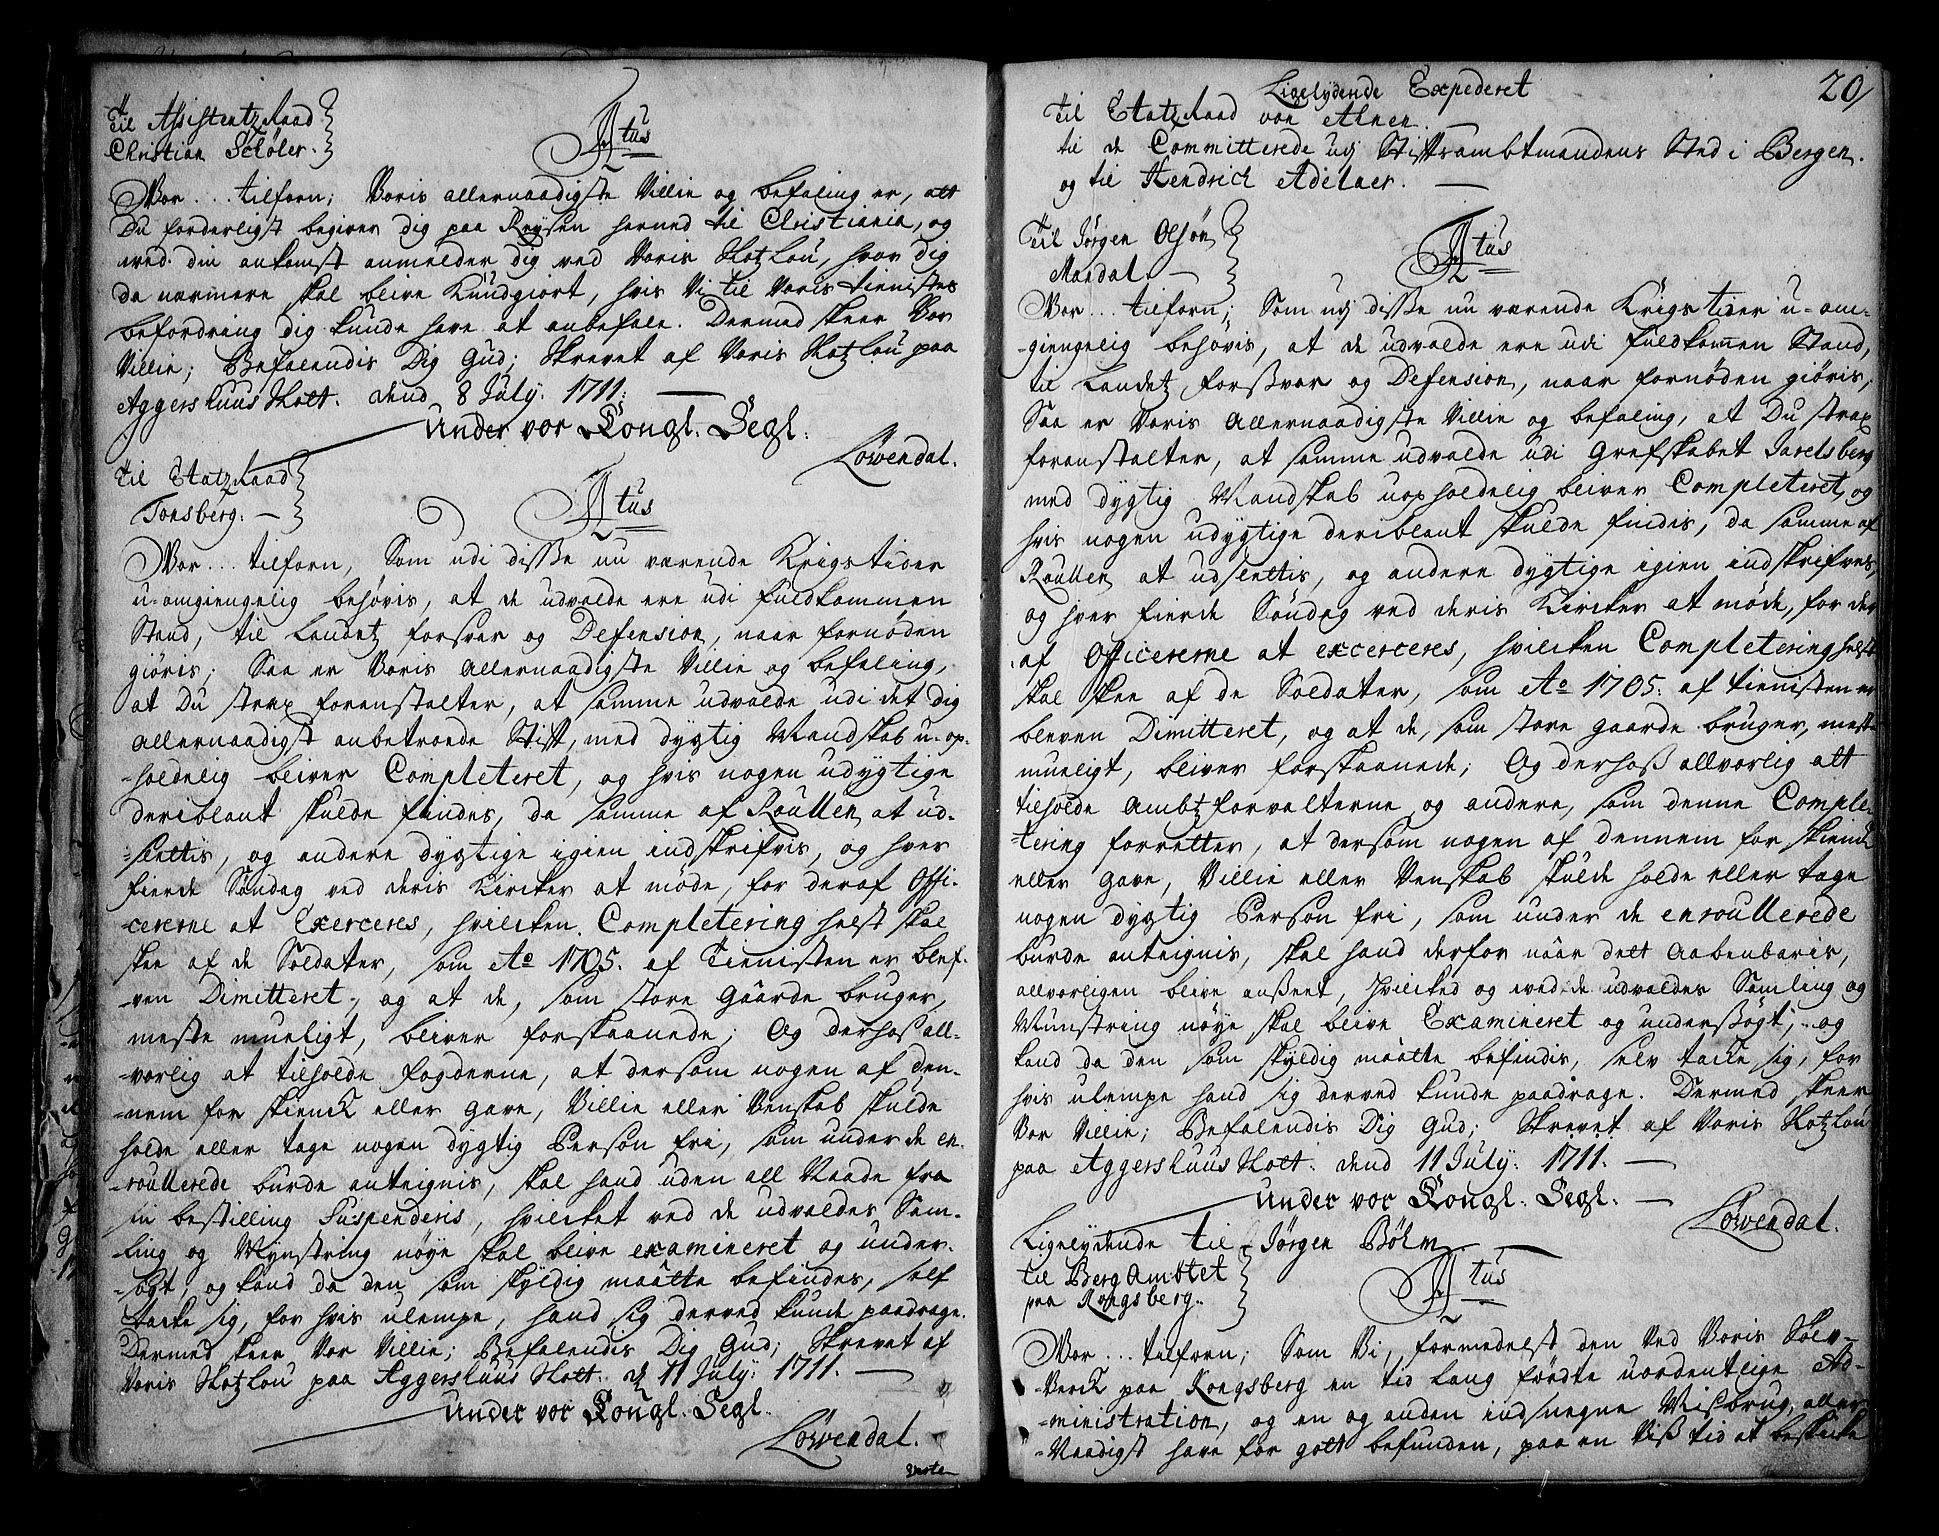 Til Assistentz Raad
Christian Schøler.
Ftus
Vor... tilforn; Voris allernaadigste Villie og befaling er, att
Du forderligst begiver dig paa Reysen herned til Christiania, og
wed din ankomst anmelder dig ved Voris Slotzlou, hvor dig
da nærmere skal blive Kundgiort, hvis Vi til Voris tienistes
befordring dig kunde have at anbefale. Dermed skeer Vor
Villie; Befalendis Dig Gud; Skrevet af Voris Slotzlou paa
Aggershuus Slott. dend 8 July. 1711.
Under vor Kongl. Segl.
Løwendal.
Til Etatz Raad
Tonsberg.
Ftus
Vor... tilforn, Som udi disse nu værende Krigstider
u-omgiengelig behøvis, at de udvalde ere udi fuldkommen
Stand, til Landetz forsvar og Defension, naar fornøden
giøris; Saa er Voris allernaadigste Villie og befaling,
at Du strax foranstalter, at samme udvalde udi det dig
allernaadigst anbetroede Stift, med dygtig Mandskab u-op-
-holdelig bliver Completeret, og hvis nogen udygtige
deriblant skulde findes, da samme af Roullen at ud-
-settis, og andre dygtige igien indskrifvis, og hver
fierde Søndag ved deris Kircker at møde, for deraf Offi-
-cererne at Exerceres, hvilcken Completering helst skal
skee af de Soldater, som Ao 1705. af Tienisten er blef-
-ven Dimitteret, og at de, som store Gaarde bruger,
meste mueligt, bliver forskaanede; Og derhos all-
-vorlig at tilholde fogderne, at dersom nogen af den-
-nem for skienck eller gave, Villie eller Venskab skulde
holde eller tage nogen dygtig Person fri, som under de en-
-roullerede burde anteignis, skal hand uden all Naade fra
sin bestilling Suspenderis, hvilcket ved de udvaldes Sam-
-ling og Mynstring nøye skal blive examineret og under-
-søgt, og kand da den, som skyldig maatte befindes, self
tacke sig, for hvis ulempe, hand sig derved kunde paadrage.
Dermed skeer Vor Villie; Befalendis Dig Gud; Skrevet af
Voris Slotzlou paa Aggershuus Slott. d 11 July: 1711.
Under vor Kongl. Segl.
Løwendal.
Ligelydende Expederet
20
Til Etatz Raad von Ahnen
til de Committerede udj Stiftsambtmandens Sted i Bergen.
og til Hendrich Adelaer.
Til Jørgen Olsøn
Mandal.
Ftus
Vor... tilforn; Som udj disse nu værende Krigstider u-om-
-giengelig behøvis, at de udvalde ere udi fuldkommen Stand,
til Landetz forssvar og Defension, naar fornøden giøris,
Saa er Voris Allernaadigste Villie og befaling, at Du strax
foranstalter, at samme udvalde udi Grefskabet Jarelsberg
med dygtig Mandskab uopholdelig bliver Completeret, og
hvis nogen udygtige deriblant skulde findis, da samme af
Roullen at udsettis, og andere dygtige igien indskrifves,
og hver fierde Søndag ved deris Kircker at møde, for der
af Officererne at excerceres, hvilcken Completering helst
skal skee af de Soldater, som Ao 1705. af tienisten er
bleven Dimitteret, og at de, som store gaarde bruger, meste
mueligt, bliver forskaanede; Og derhoss allvorlig att
tilholde Ambtzforvalterne og andere, som denne Comple-
-tering forretter, at dersom nogen af dennem for skienck
eller gave, Villie eller Venskab skulde holde eller tage
nogen dygtig Person fri, som under de enroullerede
burde anteignis, skal hand derfor naar dett Aabenbaris,
allvorligen blive ansseet, Hvilcked og wed de udvaldes Samling og
Munstring nøye skal blive Examineret og underssøgt, og
kand da den som skyldig maatte befindis, selv tacke sig, for
hvis ulempe hand sig derved kunde paadrage. Dermed skeer
Vor Villie; Befalendis Dig Gud; Skrevet af Voris Slotzlou
paa Aggershuus Slott. dend 11 July: 1711.
Under vor Kongl. Segl.
Løwendal.
Ligelydende til Jørgen Bøhm
Til Berg Ambtet
paa Kongsberg.
Ftus
Vor... tilforn; Som Vi, formedelst den Ved Voris Sølv-
-Verck paa Kongsberg en tid lang førdte uordentlige Ad-
-ministration, og en og anden indsnegne Misbrug, aller-
-Naadigst have for gott befunden, paa en Viss tid at beskicke